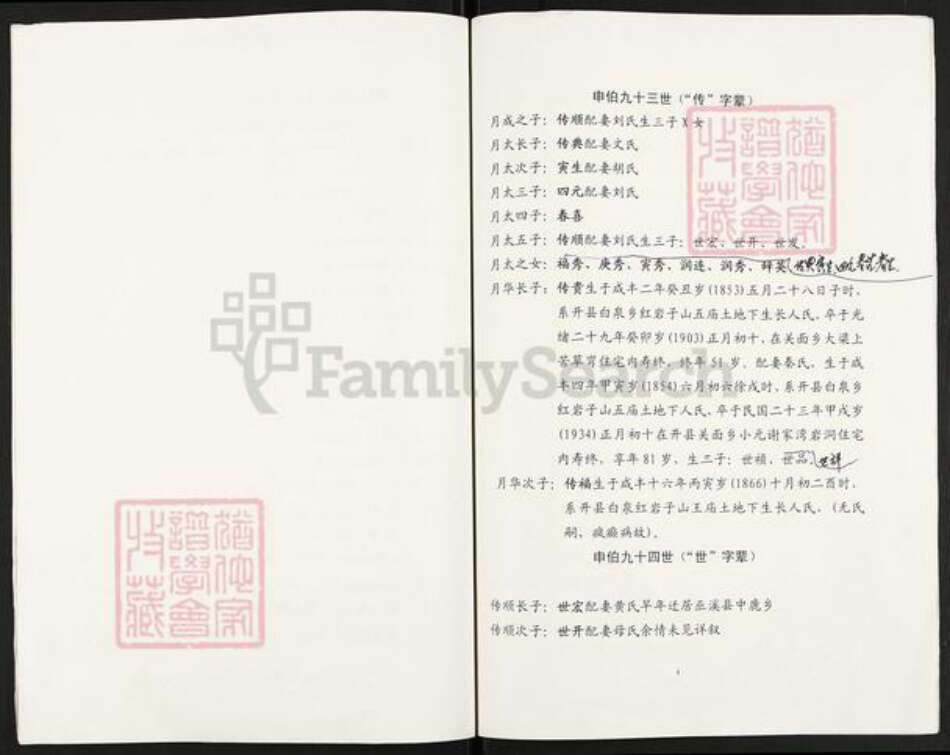 申伯九十三世（“传”字辈）
月成之子：传顺配妻刘氏生三子X女
月太长子：传典配妻文氏
月太次子：寅生配妻胡氏
月太三子：四元配妻刘氏
月太四子：春喜
月太五子：传顺配妻刘氏生三子：世宏、世开、世发。
月太之女：福秀、庚秀、寅秀、润连、润秀、辞英
月华长子：传贵生于成丰二年癸丑岁(1853)五月二十八日子时，
系开县白泉乡红岩子山五庙土地下生长人氏，卒于光
绪二十九年癸卯岁(1903)正月初十，在关面乡大梁上
苦草宵住宅内寿终，终年51岁，配妻秦氏，生于成
丰四年甲寅岁(1854)六月初六徐戌时，系开县白泉乡
红岩子山五庙土地下人氏，卒于民国二十三年甲戌岁
(1934)正月初十在开县关面乡小元谢家湾岩洞住宅
内寿终，享年81岁，生三子：世祯，世品，世祥
月华次子：传福生于成丰十六年丙寅岁(1866)十月初二酉时，
系开县白泉红岩子山王庙土地下生长人氏，（无氏
嗣，疯癫病故）。
申伯九十四世（“世”字辈）
传顺长子：世宏配妻黄氏早年迁居巫溪县中鹿乡
传顺次子：世开配妻母氏余情未见详叙
FamilySearch
猶他家
譜學會
收藏
猶他家
譜學會
收藏